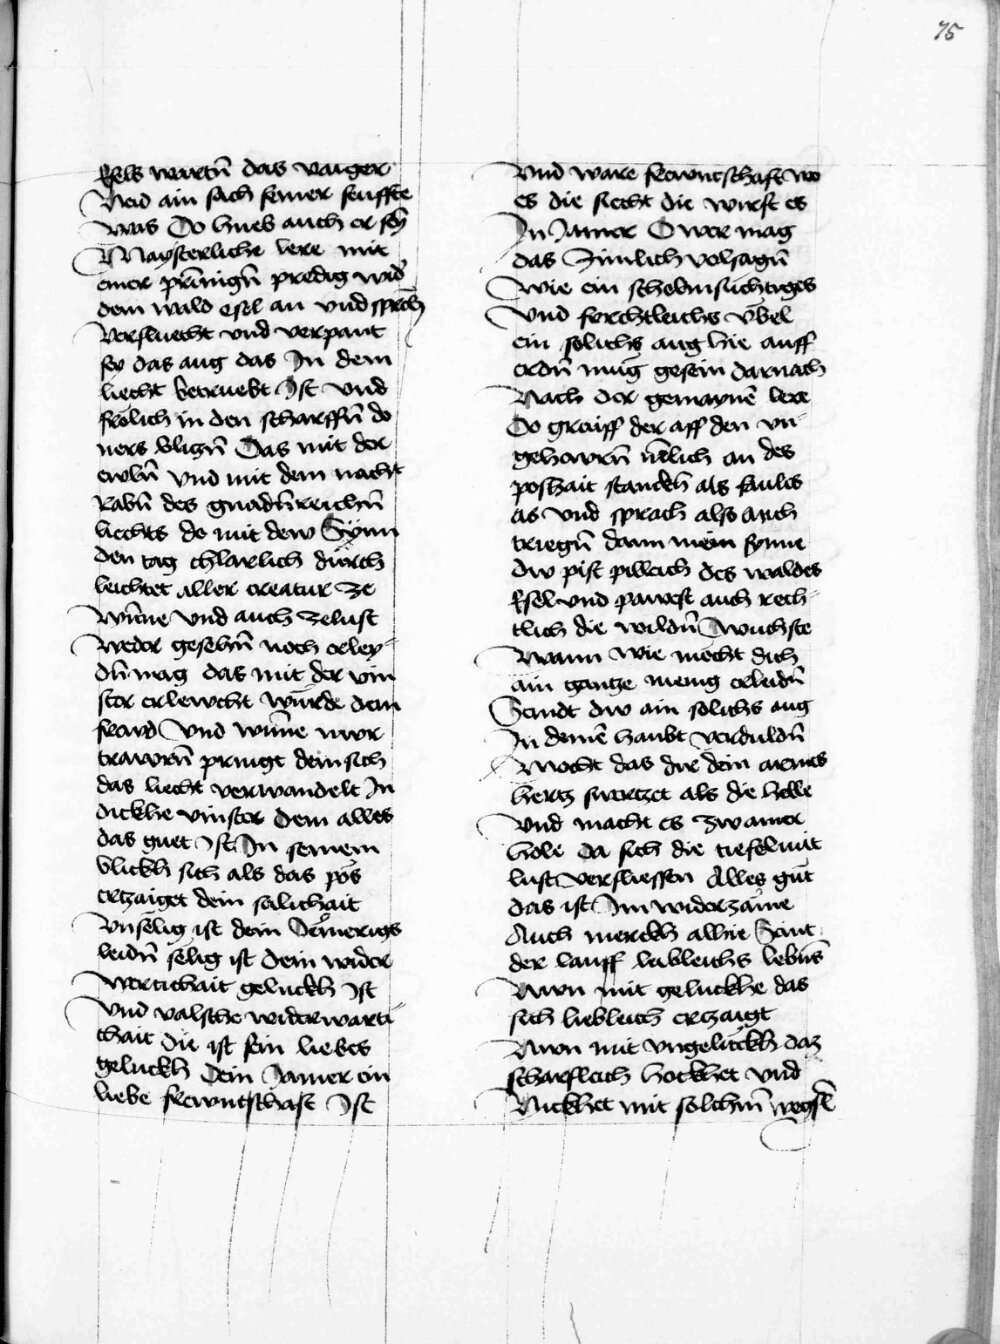 75
Esels wartn̄ das vaiger
Neid ain sach seiner seuffte
was Do hueb auch er sein
Maysterliche lere mit
einer prīnign̄ predig wid̄
dem wald esel an vnd sprach
Verfluecht vnd verpant
sey das aug das In dem
liecht betruebt Ist vnd
frölich in den scharffn̄ do
ners blign̄ Das mit der
ewln̄ vnd mit dem nacht
Rabn̄ des gnadn̄reichn̄
liechts do mit dew Synn
den tag chlarlich durch
leichtet aller creatur ze
wūne vnd auch zelust
weder gesehn̄ noch erley
dn̄ mag das mit der vin
ster erlewcht wurde dem
frewd vnd wūne nwr
trawrn̄ pringt dem sich
das liecht verwandelt In
dickhe vinster dem alles
das guet Ist In seinem
blickh sich als das pös
ertzaiget dem salichait
vnsëlig ist dem Jämerigs
leidn̄ sëlig ist dem wider
wertichait geluckh Ist
vnd valsche widerwarti
chait die ist sein liebes
geluckh Dem Jamer ein
liebe frewntschafft Ist
Vnd ware frewntschafft wo
es die siecht die wirft es
In Jamer O wer mag
das Zimlich volsagn̄
Wie ein schelmsuchtiges
Vnd forchtleichs vbel
ein solichs aug hie auff
erdn̄ mug gesein darnach
Nach der gemaynē lere
Do graiff der aff den vn
gehewrn̄ n̄lich an des
poshait stanckh als faules
as vnd sprach also Auch
triegn̄ dann mein synne
dw pist pilleich des waldes
Esel vnd pawest auch rech
tlich die wildn̄ wuchste
Wann wie mocht dich
ain gantze menig erleidn̄
Seindt dw ain solichs aug
In deinē haubt verduldn̄
Mocht das dir dein armes
hertz swertzet als die helle
Vnd macht es zw ainer
hole Da sich die tiefel mit
lust verfliessen Alles gut
das ist Im widerzäme
Auch merckh alhie Seint
der lauff leibleichs lebn̄s
Nwn mit geluckhe das
sich liebleich ertzaigt
Nwn mit vngeluckh daz
scharfleich hockhet vnd
Nickhet mit solchm̄ wegsl̄